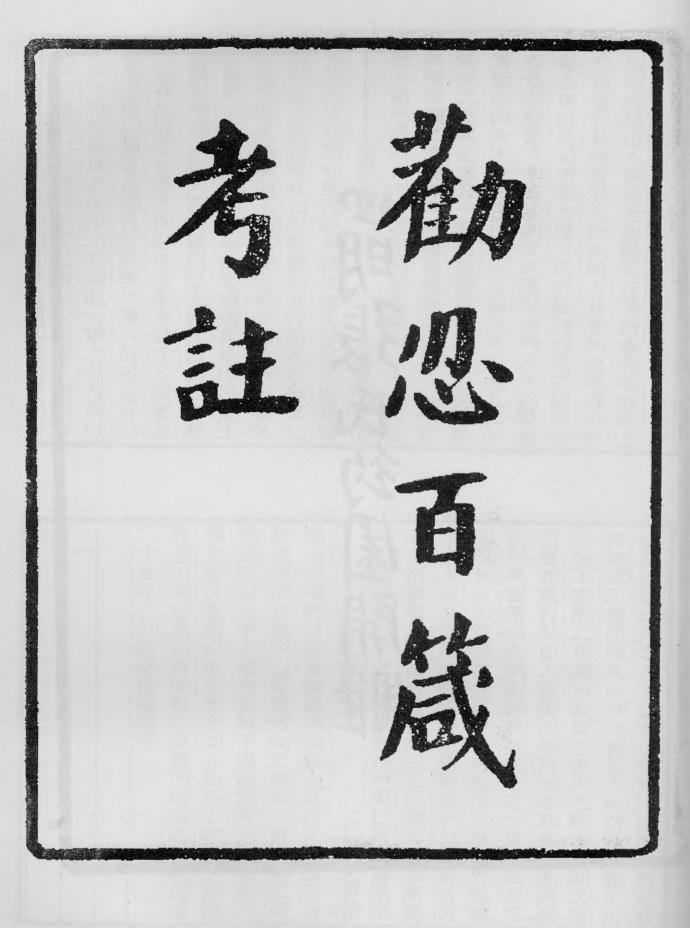 勸忍百箴
考註